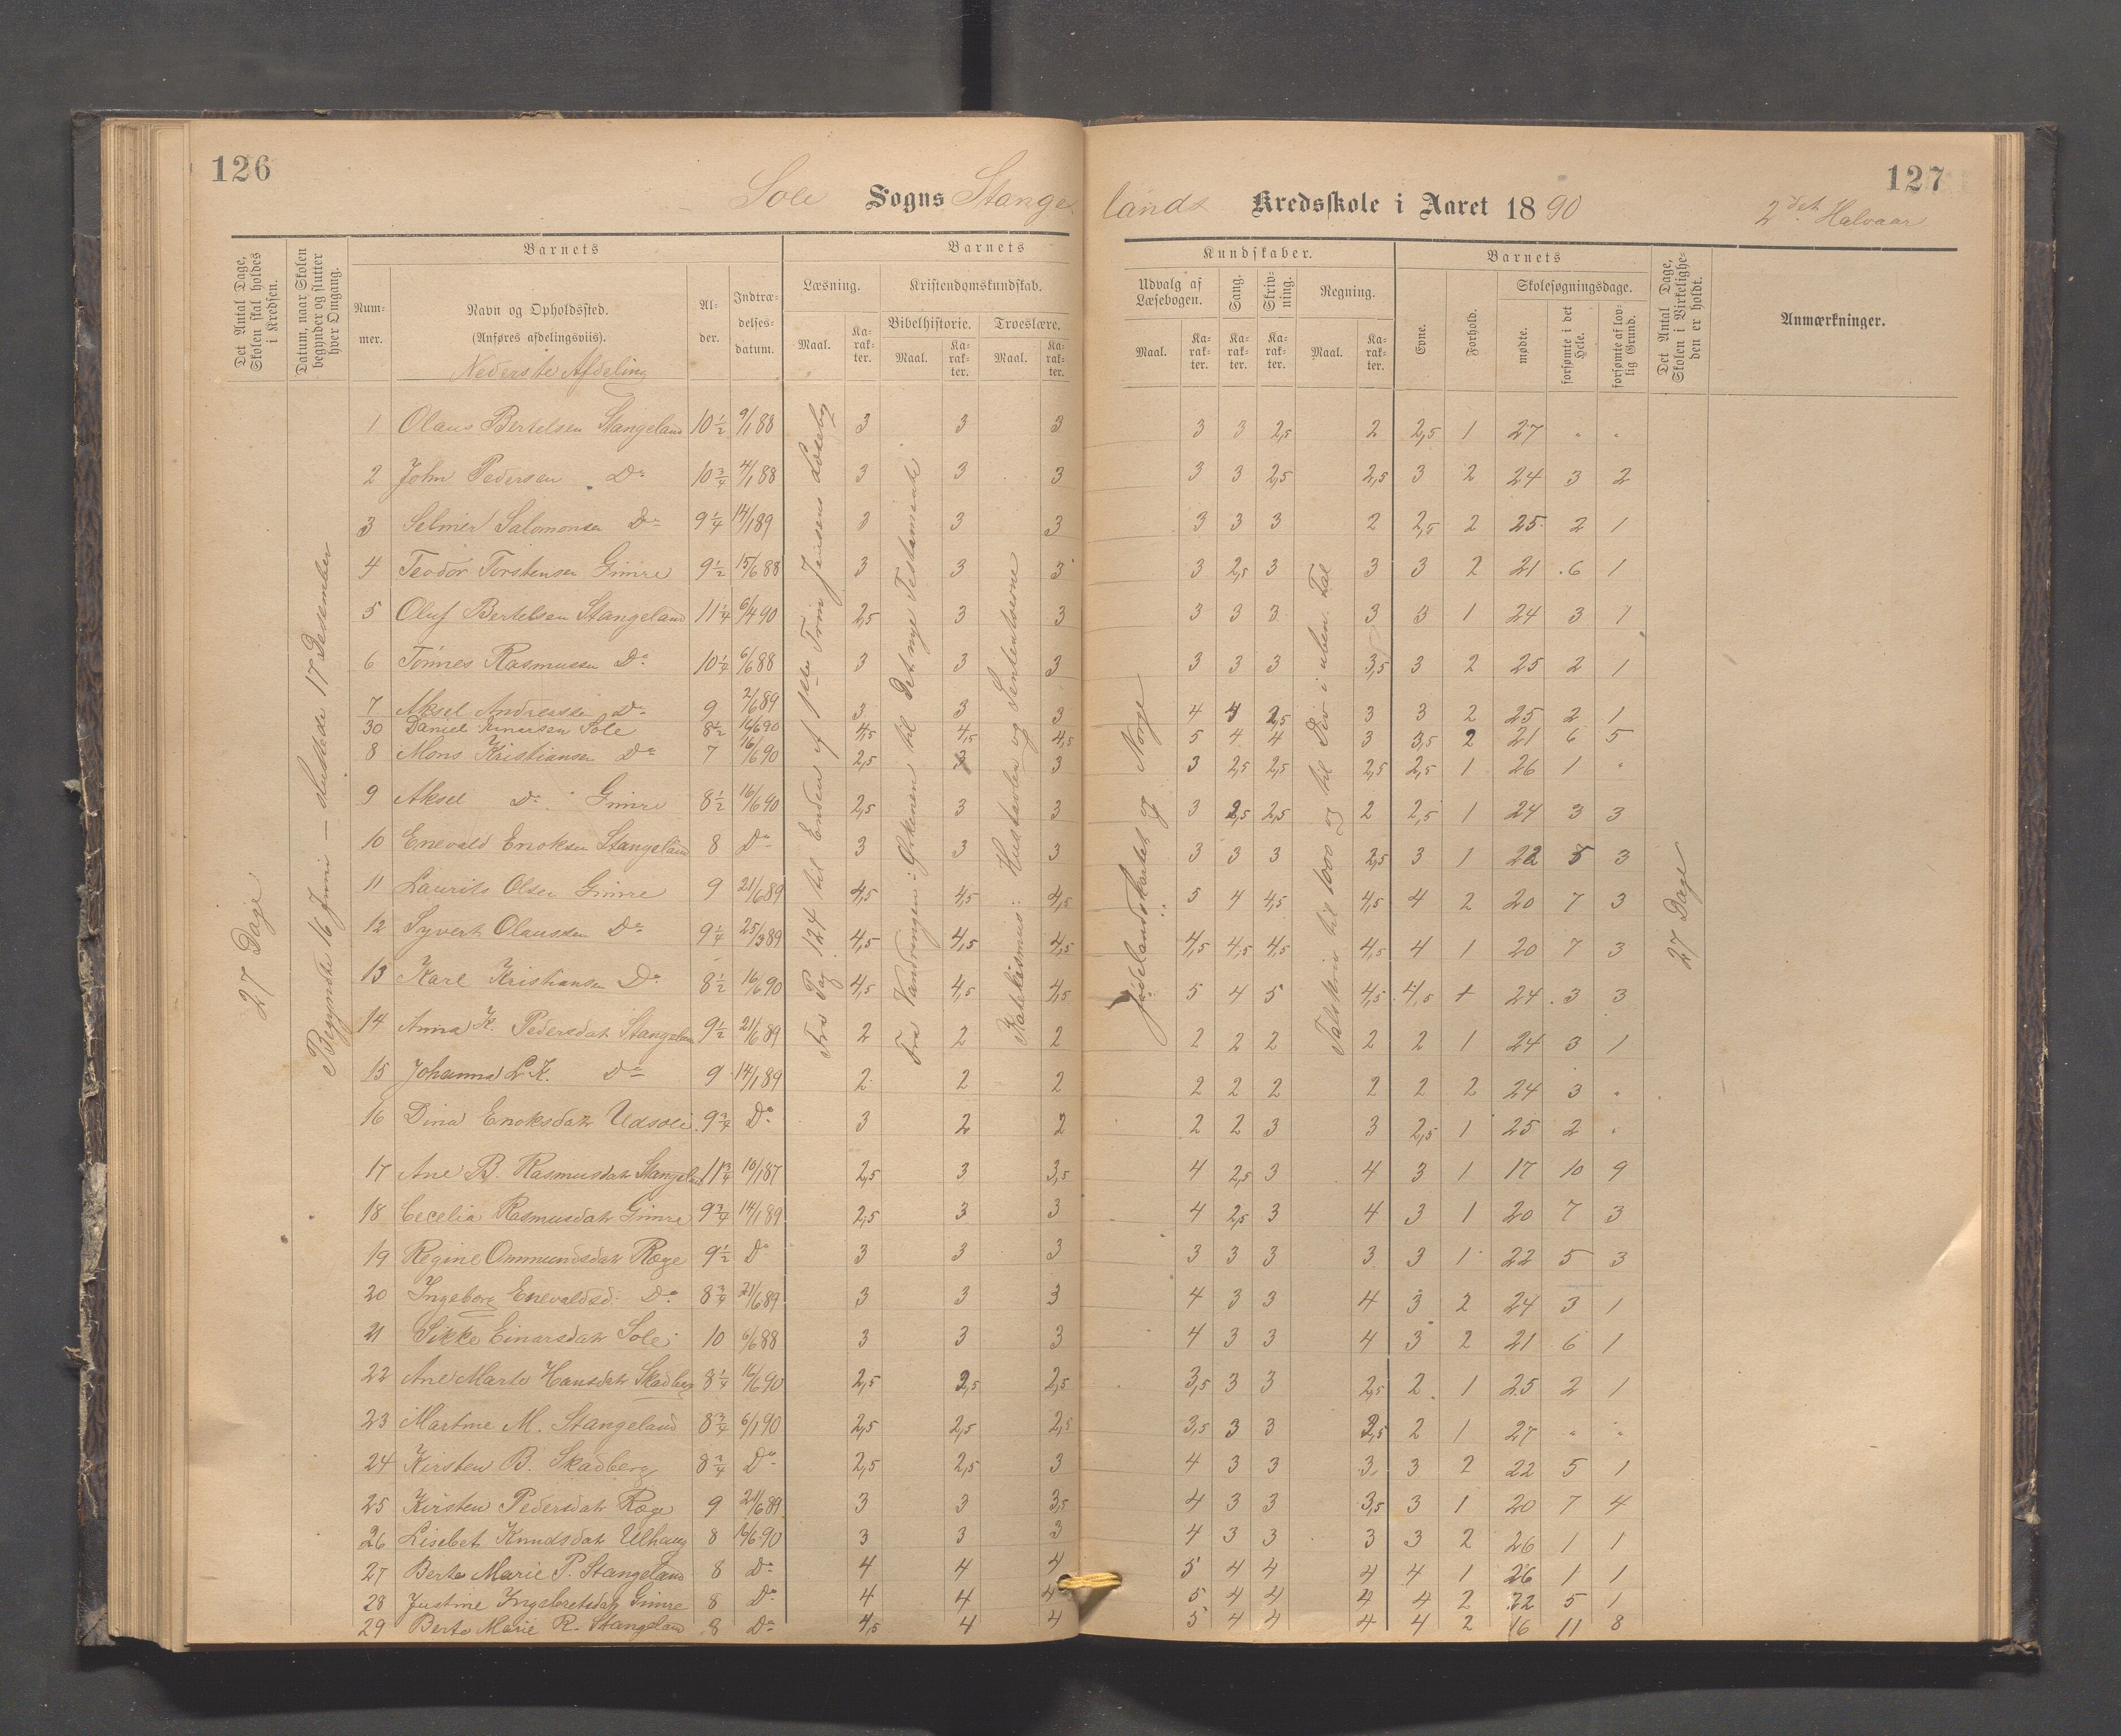 126
127
Sole Sogns Stangelands Kredsskole i Aaret 1890
2det Halvaar
Det Antal Dage, Skolen skal holdes i Kredsen.
Datum, naar Skolen begynder og slutter hver Omgang.
Barnets
Num-mer.
Navn og Opholdssted.
(Anføres afdelingsviis).
Nederste Afdeling
Al-der.
Indtræ-delses-datum.
Barnets Kundskaber.
Læsning. Maal. Ka-rak-ter.
Kristendomskundskab.
Bibelhistorie. Maal. Ka-rak-ter.
Troeslære. Maal. Ka-rak-ter.
Udvalg af Læsebogen. Maal. Ka-rak-ter.
Sang. Ka-rak-ter.
Skriv-ning. Ka-rak-ter.
Regning. Maal. Ka-rak-ter.
Barnets
Evne.
Forhold.
Skolesøgningsdage.
mødte.
forsømte i det Hele.
forsømte af lov-lig Grund.
Det Antal Dage, Skolen i Virkelighe-den er holdt.
Anmærkninger.
27 Dage
Begyndte 16 Juni — sluttede 17 Desember
Fra Pag. 124 til Enden af Jensens Læsebog
Fra Vandringen i Ørkenen til Det nye Testamente
Katekismus: Hustavlen og Sententserne
Jødelandskartet og Norge
Talskriv. til 1000 og til Div i uben. Tal
27 Dage
1 Olaus Bertelsen Stangeland 10 1/2 9/1 88 3 3 3 3 3 2,5 2 2,5 1 27 " "
2 John Pedersen Do 10 3/4 4/1 88 3 3 3 3 3 2,5 2,5 3 2 24 3 2
3 Selmer Salomonsen Do 9 1/4 14/1 89 3 3 3 3 3 3 2 2,5 2 25 2 1
4 Teodor Torstensen Gimre 9 1/2 15/6 88 3 3 3 3 2,5 3 3 3 2 21 6 1
5 Oluf Bertelsen Stangeland 11 1/4 6/4 90 2,5 3 3 3 3 3 3 3 1 24 3 1
6 Tønnes Rasmussen Do 10 1/4 6/6 88 3 3 3 3 3 3 3,5 3 2 25 2 1
7 Aksel Andreassen Do 9 2/6 89 3 3 3 4 4 2,5 3 3 2 25 2 1
30 Daniel Einersen Sole 8 1/2 16/6 90 4,5 4,5 4,5 5 4 4 3 3,5 2 21 6 5
8 Mons Kristiansen Do 7 16/6 90 2,5 3 3 3 2,5 2,5 2,5 2,5 1 26 1 "
9 Aksel Do Gimre 8 1/2 16/6 90 2,5 3 3 3 2,5 2,5 2 2,5 1 24 3 3
10 Enevald Enoksen Stangeland 8 Do 3 3 3 3 3 3 2,5 3 1 22 5 3
11 Laurits Olsen Gimre 9 21/6 89 4,5 4,5 4,5 5 4 4,5 4,5 4 2 20 7 3
12 Syvert Olaussen Do 9 1/4 25/3 89 4,5 4,5 4,5 4,5 4,5 4,5 4,5 4 1 20 7 3
13 Karl Kristiansen Do 8 1/2 16/6 90 4,5 4,5 4,5 5 4 5 4,5 4,5 1 24 3 3
14 Anna K. Pedersdatr Stangeland 9 1/2 21/6 89 2 2 2 2 2 2 2 2 1 24 3 1
15 Johanna L. K. Do 9 14/1 89 2 2 2 2 2 2 2 2 2 24 3 "
16 Dina Enoksdatr Udsole 9 3/4 Do 3 2 2 2 2 3 3 2,5 1 25 2 "
17 Ane B. Rasmusdatr Stangeland 11 3/4 10/1 87 2,5 3 3,5 4 2,5 3 4 3 1 17 10 9
18 Cecelia Rasmusdatr Gimre 9 3/4 14/1 89 2,5 3 3 4 2,5 3 4 3 1 20 7 3
19 Regine Ommundsdatr Røge 9 1/2 Do 3 3 3 3 3 3 3 3 1 22 5 3
20 Ingeborg Enevaldsd. Do 8 3/4 21/6 89 3 3 3 4 3 3 4 3 2 24 3 1
21 Sikke Einarsdatr Sole 10 6/6 88 3 3 3 4 3 3 4 3 2 21 6 1
22 Ane Marte Hansdatr Skadberg 8 1/4 16/6 90 2,5 2,5 2,5 3,5 3 3 2,5 2 1 25 2 1
23 Martine M. Stangeland 8 3/4 6/1 90 2,5 2,5 2,5 3,5 3 3 2,5 2 1 27 " "
24 Kirsten B. Skadberg 8 3/4 Do 2,5 2,5 3 4 3 3 3 3 2 22 5 1
25 Kirsten Pedersdatr Røge 9 21/6 89 3 3 3,5 4 3 3 3,5 3 1 20 7 4
26 Lisebet Knudsdatr Ulhaug 8 16/6 90 3 3 3 4 3 3 3 3 2 26 1 1
27 Berte Marie P. Stangeland 8 Do 4 4 4 5 4 4 4 4 1 26 1 1
28 Justine Ingebretsdatr Gimre 8 Do 4 4 4 5 4 4 4 4 2 22 5 1
29 Berte Marie R. Stangeland 8 Do 4,5 4 4 5 4 4 4 4 2 16 11 8